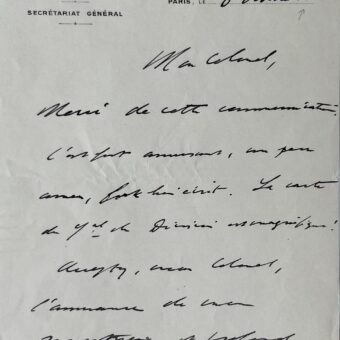 PARIS, LE
SECRÉTARIAT GÉNÉRAL
Mon Colonel,
Merci de cette communication.
C'est fort amusant, un peu
amer, fort bien écrit. La carte
du Gal de Division est magnifique!
Agréez, mon Colonel,
l'assurance de mon